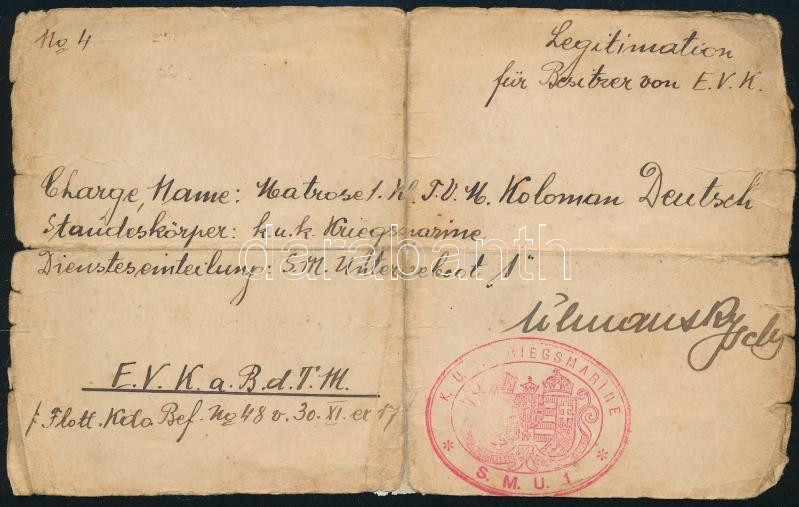 No 4
Legitimation
für Besitzer von E.V.K.
Charge, Name: Matrose 1. Kl. T.V.M. Koloman Deutsch
Standeskörper: k.u.k. Kriegsmarine
Diensteseinteilung: S.M. Unterseeboot "1"
E.V.K. a. B.d.T.M.
Flott. Kdo Bef. No 48 v. 30. XI. er 17
K. U. K. KRIEGSMARINE
* S. M. U. 1 *
darabanth